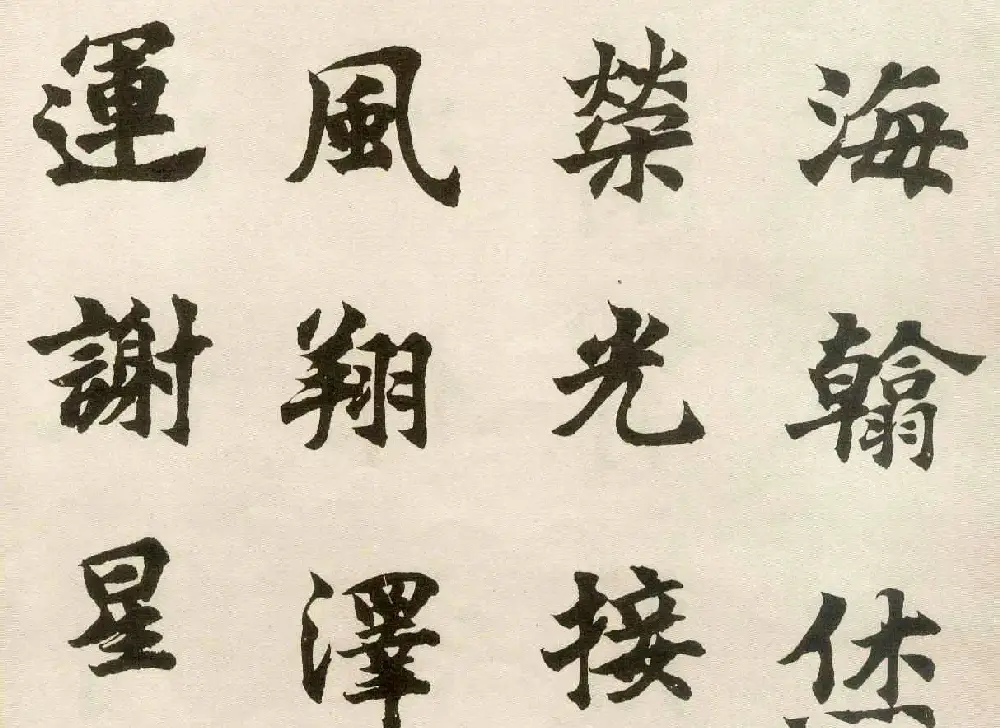 海翰
榮光接
風翔澤
運謝星